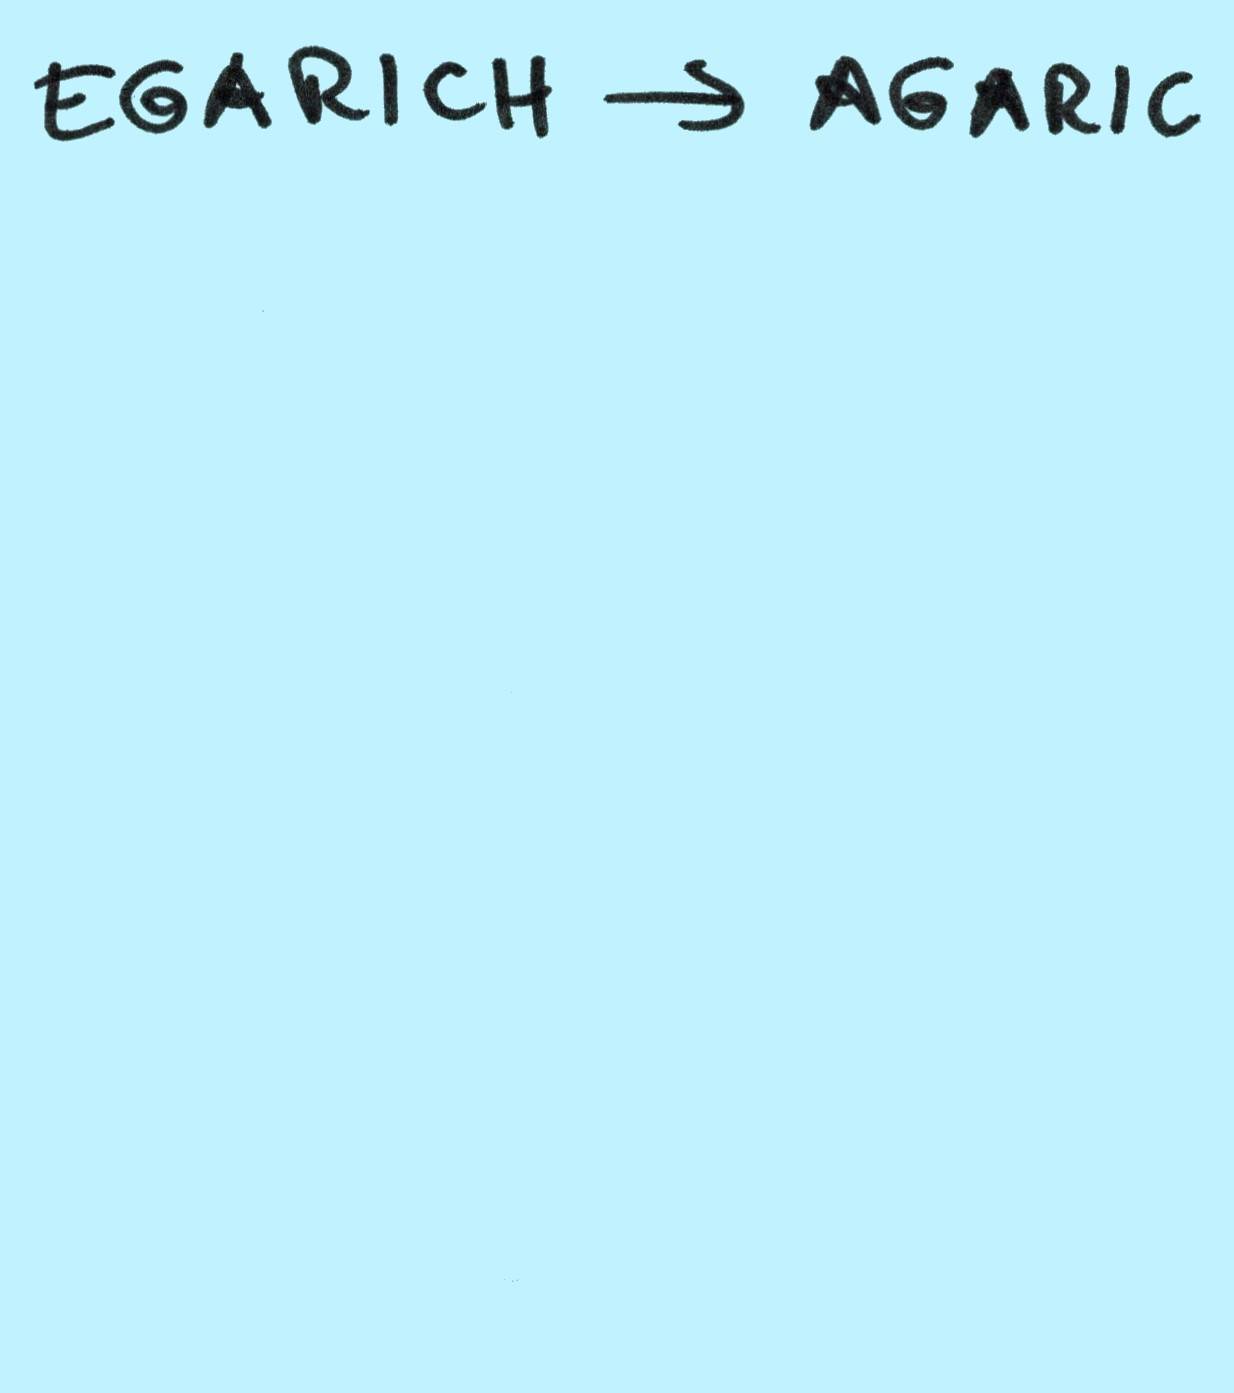 EGARICH → AGARIC